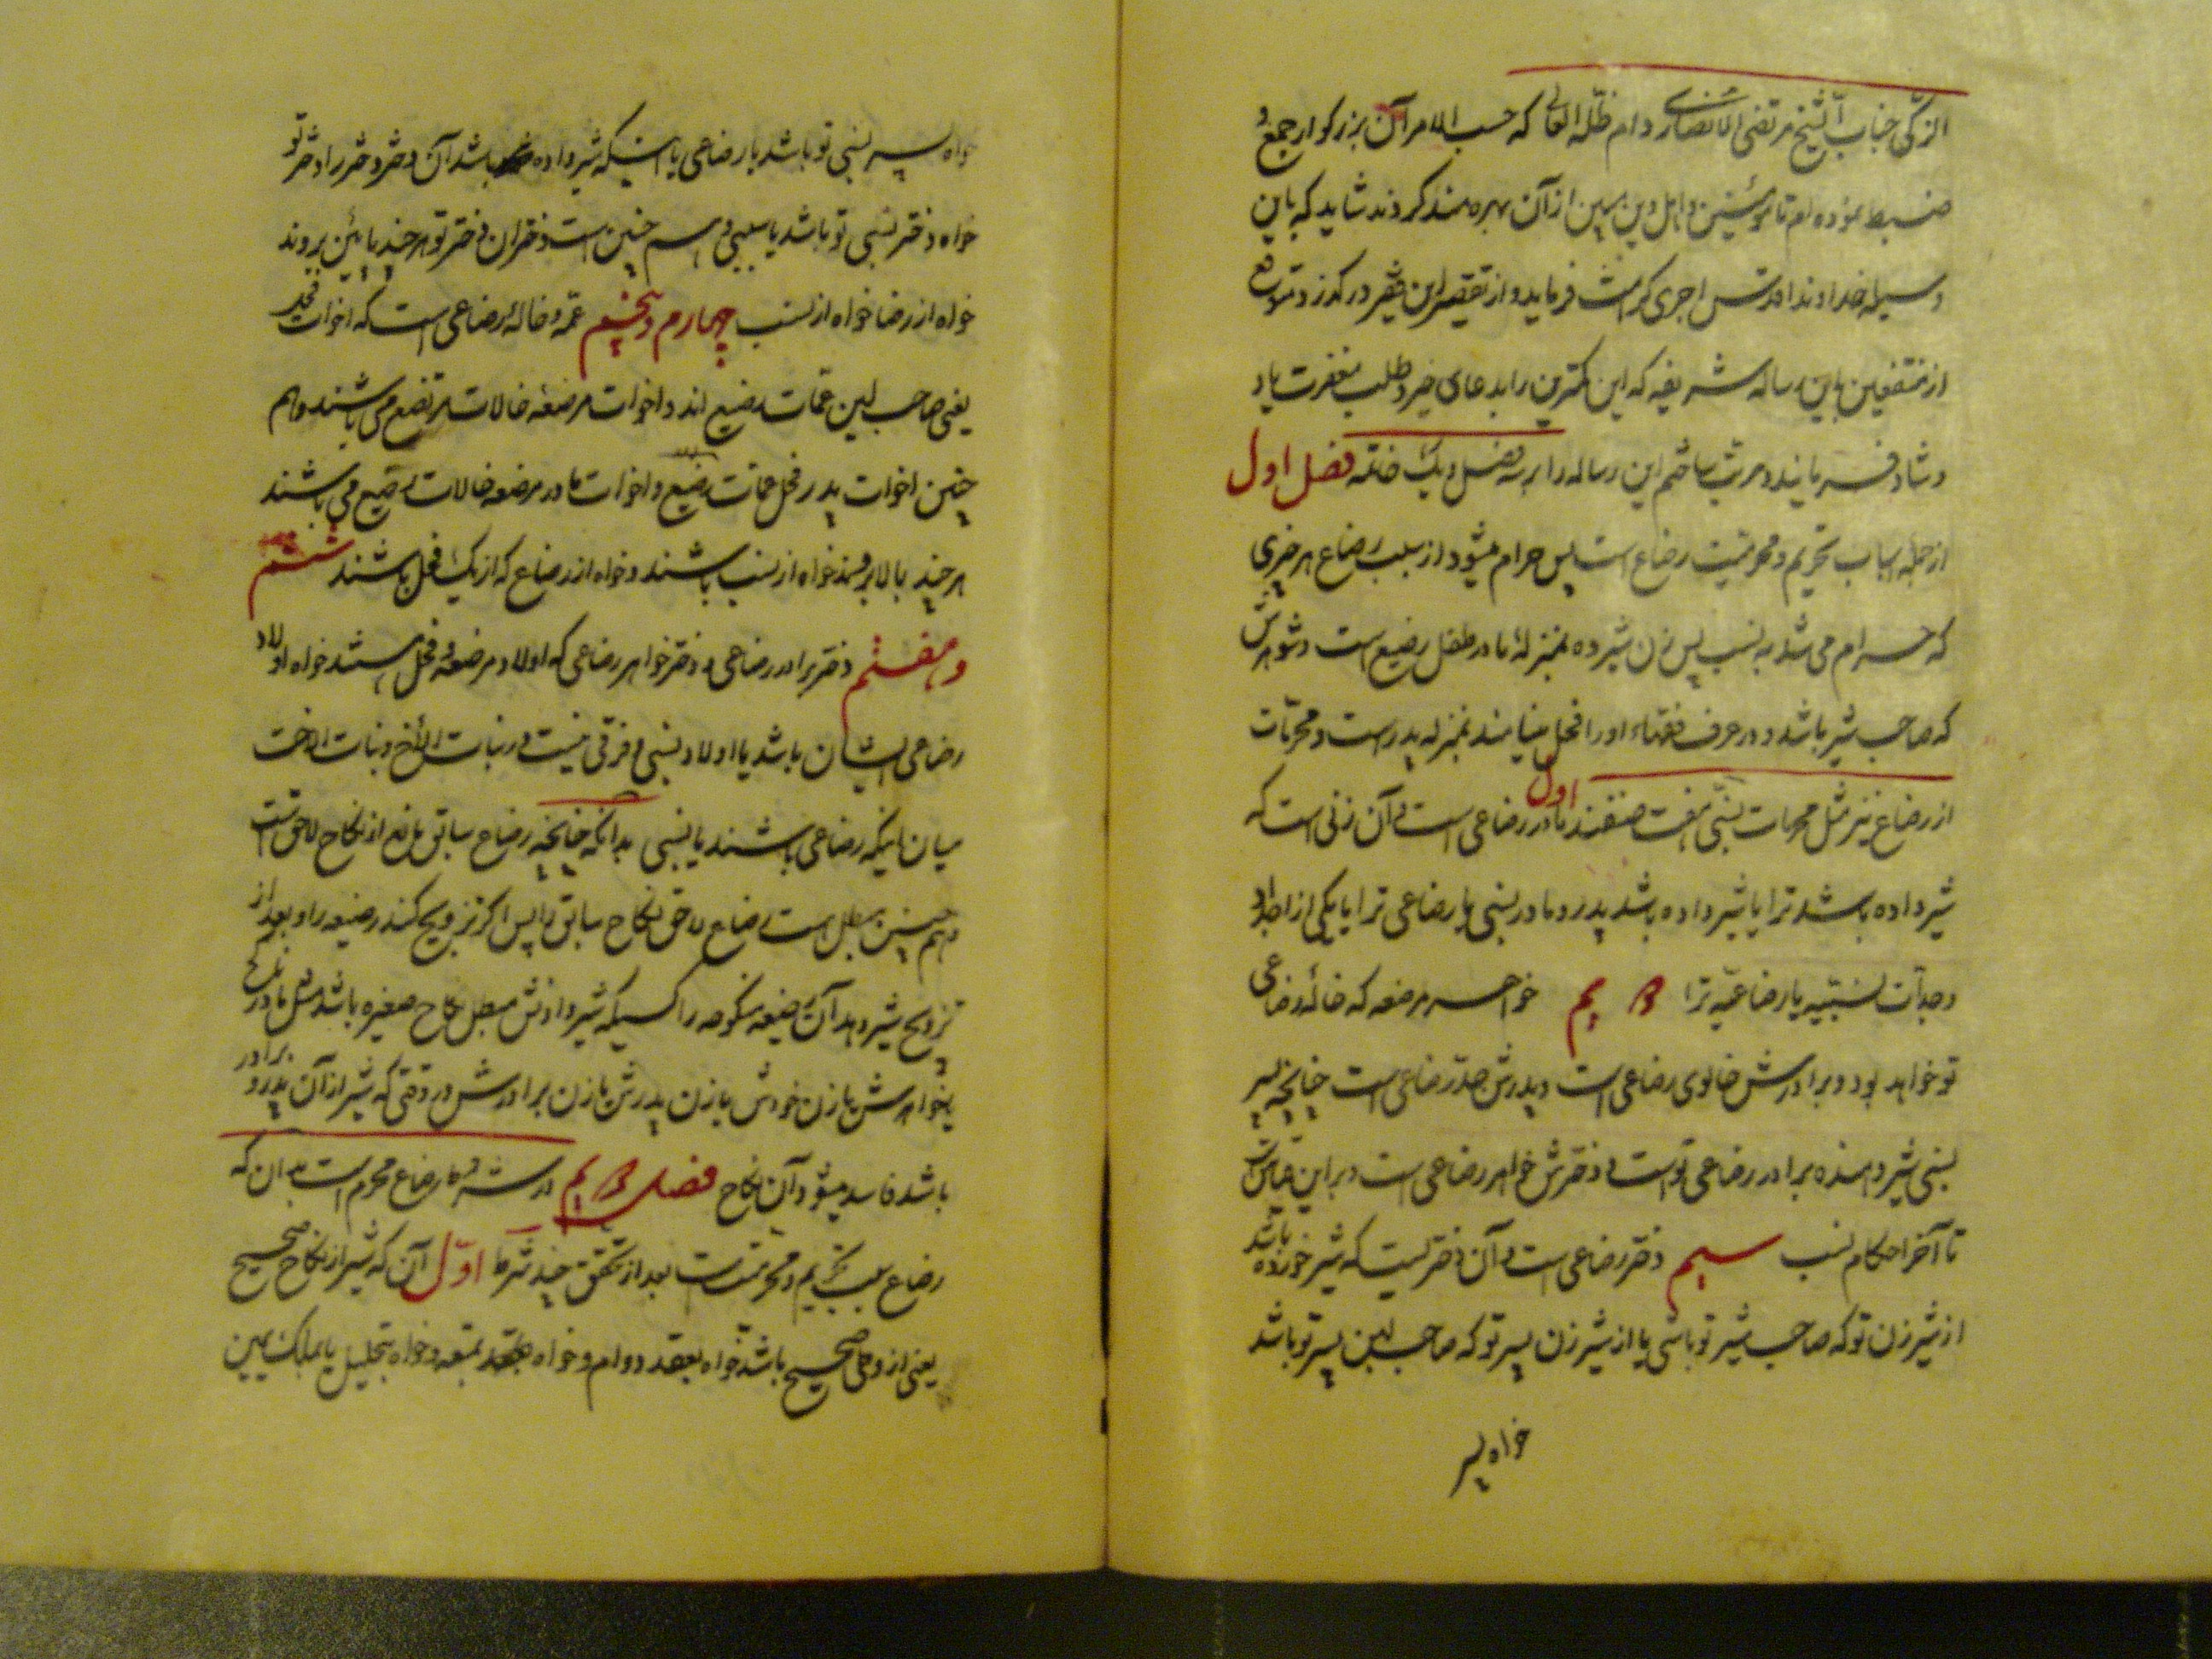 الزکی جناب الشیخ مرتضی الانصاری دام ظله العالی که حسب الامر آن بزرکوار جمع و
ضبط نموده ام تا مؤمنین و اهل دین مبین از آن بهره مند کردند شاید که باین
وسیله خداوند اقدس اجری کرامت فرماید و از تقصیر این فقیر درکذرد و متوقع
از منتفعین باین رساله شریفه که این کمترین را بدعای خیر و طلب مغفرت یاد
و شاد فرمایند و مرتب ساختم این رساله را بر سه فصل و یک خاتمه فصل اول
از جمله اسباب تحریم و محرمیت رضاع است پس حرام میشود از سبب رضاع هر چیزی
که حرام می شد به نسب پس زن شیر ده بمنزلهٔ مادر طفل رضیع است و شوهرش
که صاحب شیر باشد و در عرف فقهاء او را فحل مینامند بمنزله پدر است و محرمات
از رضاع نیز مثل محرمات نسبی هفت صنفند اول مادر رضاعی است و آن زنی است که
شیر داده باشد ترا یا شیر داده باشد پدر و مادر نسبی یا رضاعی ترا یا یکی از اجداد
و جدات نسبیه یا رضاعیه ترا دویم خواهر مرضعه که خالهٔ رضاعی
تو خواهد بود و برادرش خالوی رضاعی است و پدرش جد رضاعی است چنانچه پسر
نسبی شیر دهنده برادر رضاعی تو است و دخترش خواهر رضاعی است و بر این قیاس است
تا آخر احکام نسب سیم دختر رضاعی است و آن دختریست که شیر خورده باشد
از شیر زن تو که صاحب شیر تو باشی یا از شیر زن پسر تو که صاحب لبن پسر تو باشد
خواه پسر
خواه پسر نسبی تو باشد یا رضاعی یا اینکه شیر داده باشد آن دختر دختر را دختر تو
خواه دختر نسبی تو باشد یا سببی و هم چنین است دختران دختر تو هر چند پائین روند
خواه از رضا خواه از نسب چهارم و پنجم عمه و خالهٔ رضاعی است که اخوات فحل
یعنی صاحب لبن عمات رضیع اند و اخوات مرضعه خالات مرتضع می باشند و هم
چنین اخوات پدر فحل عمات رضیع و اخوات مادر مرضعه خالات رضیع می باشند
هر چند بالا روند خواه از نسب باشند و خواه از رضاع که از یک فحل باشند ششم
و هفتم دختر برادر رضاعی و دختر خواهر رضاعی که اولاد مرضعه و فحل هستند خواه اولاد
رضاعی ایشان باشد یا اولاد نسبی و فرقی نیست در بنات الأخ و بنات الاخت
میان اینکه رضاعی باشند یا نسبی بدانکه چنانچه رضاع سابق مانع از نکاح لاحق است
و هم چنین مبطل است رضاع لاحق نکاح سابق را پس اکر تزویج کند رضیعه را و بعد از
تزویج شیر دهد آن رضیعه منکوحه را کسیکه شیر دادنش مبطل نکاح صغیره باشد مثل مادر ناکح
یا خواهرش یا زن خودش یا زن پدرش یا زن برادرش در وقتی که شیر از آن پدر و برادر
باشد فاسد میشود آن نکاح فصل دویم در شروط رضاع محرم است بدان که
رضاع سبب تحریم و محرمیت است بعد از تحقق چند شرط اول آن که شیر از نکاح صحیح
یعنی از وطی صحیح باشد خواه بعقد دوام و خواه بعقد متعه و خواه بتحلیل یا بملک یمین